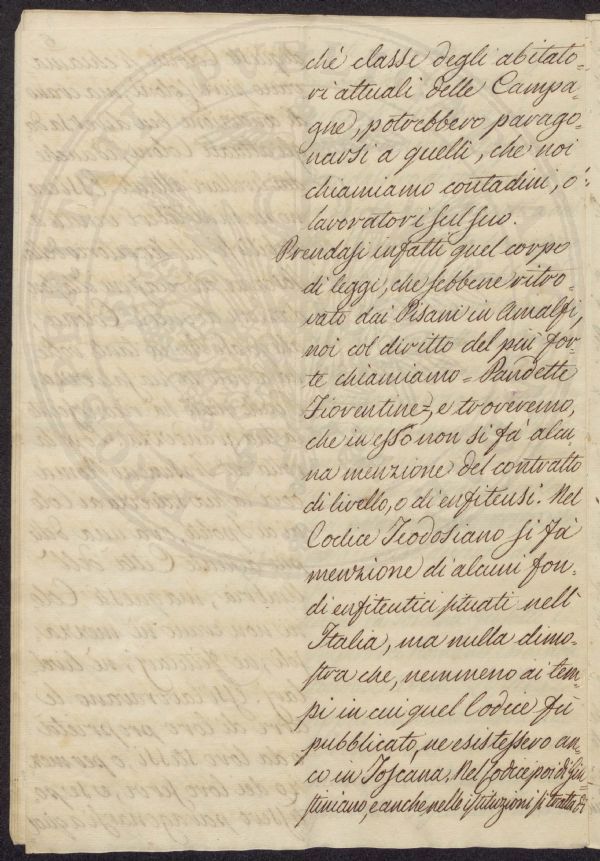 ché classe degli abitato-
ri attuali delle Campa-
gne, potrebbero parago-
narsi a quelli, che noi
chiamiamo contadini, o'
lavoratori sul suo.
Prendasi infatti quel corpo
di leggi, che sebbene ritro-
vato dai Pisani in Amalfi,
noi col diritto del più for-
te chiamiamo = Pandette
Fiorentine =, e troveremo,
che in esso non si fà alcu
na menzione del contratto
di livello, o di enfiteusi. Nel
Codice Teodosiano si fà
menzione di alcuni fon-
di enfiteutici situati nell'
Italia, ma nulla dimo-
stra che, nemmeno ai tem-
pi in cui quel Codice fù
pubblicato, ne esistessero an-
co in Toscana. Nel Codice poi di Giu-
stiniano, e anche nelle istituzioni si tratta di